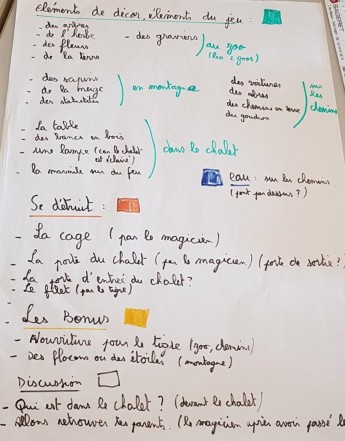 Elements de décor, éléments du jeu :
- des arbres
- de l'herbe
- des fleurs
- de la terre
- des graviers
au zoo
(les 2 zoos)
- des sapins
- de la neige
- des stalactites
en montagne
des voitures
des arbres
des chemins en terre
du goudron
sur les chemins
- La table
- des bancs en bois
- une lampe (car le chalet est éclairé)
- la marmite sur du feu
dans le chalet
eau : sur les chemins
(pont par dessus ?)
Se détruit :
- La cage (par le magicien)
- La porte du chalet (par le magicien) (porte de sortie ?)
- La porte d'entrée du chalet ?
- Le filet (par le tigre)
- Les Bonus
- Nourriture pour le tigre (zoo, chemins)
- Des flocons ou des étoiles (montagne)
Discussion
- Qui est dans le chalet ? (devant le chalet)
- Allons retrouver tes parents. (le magicien après avoir passé le